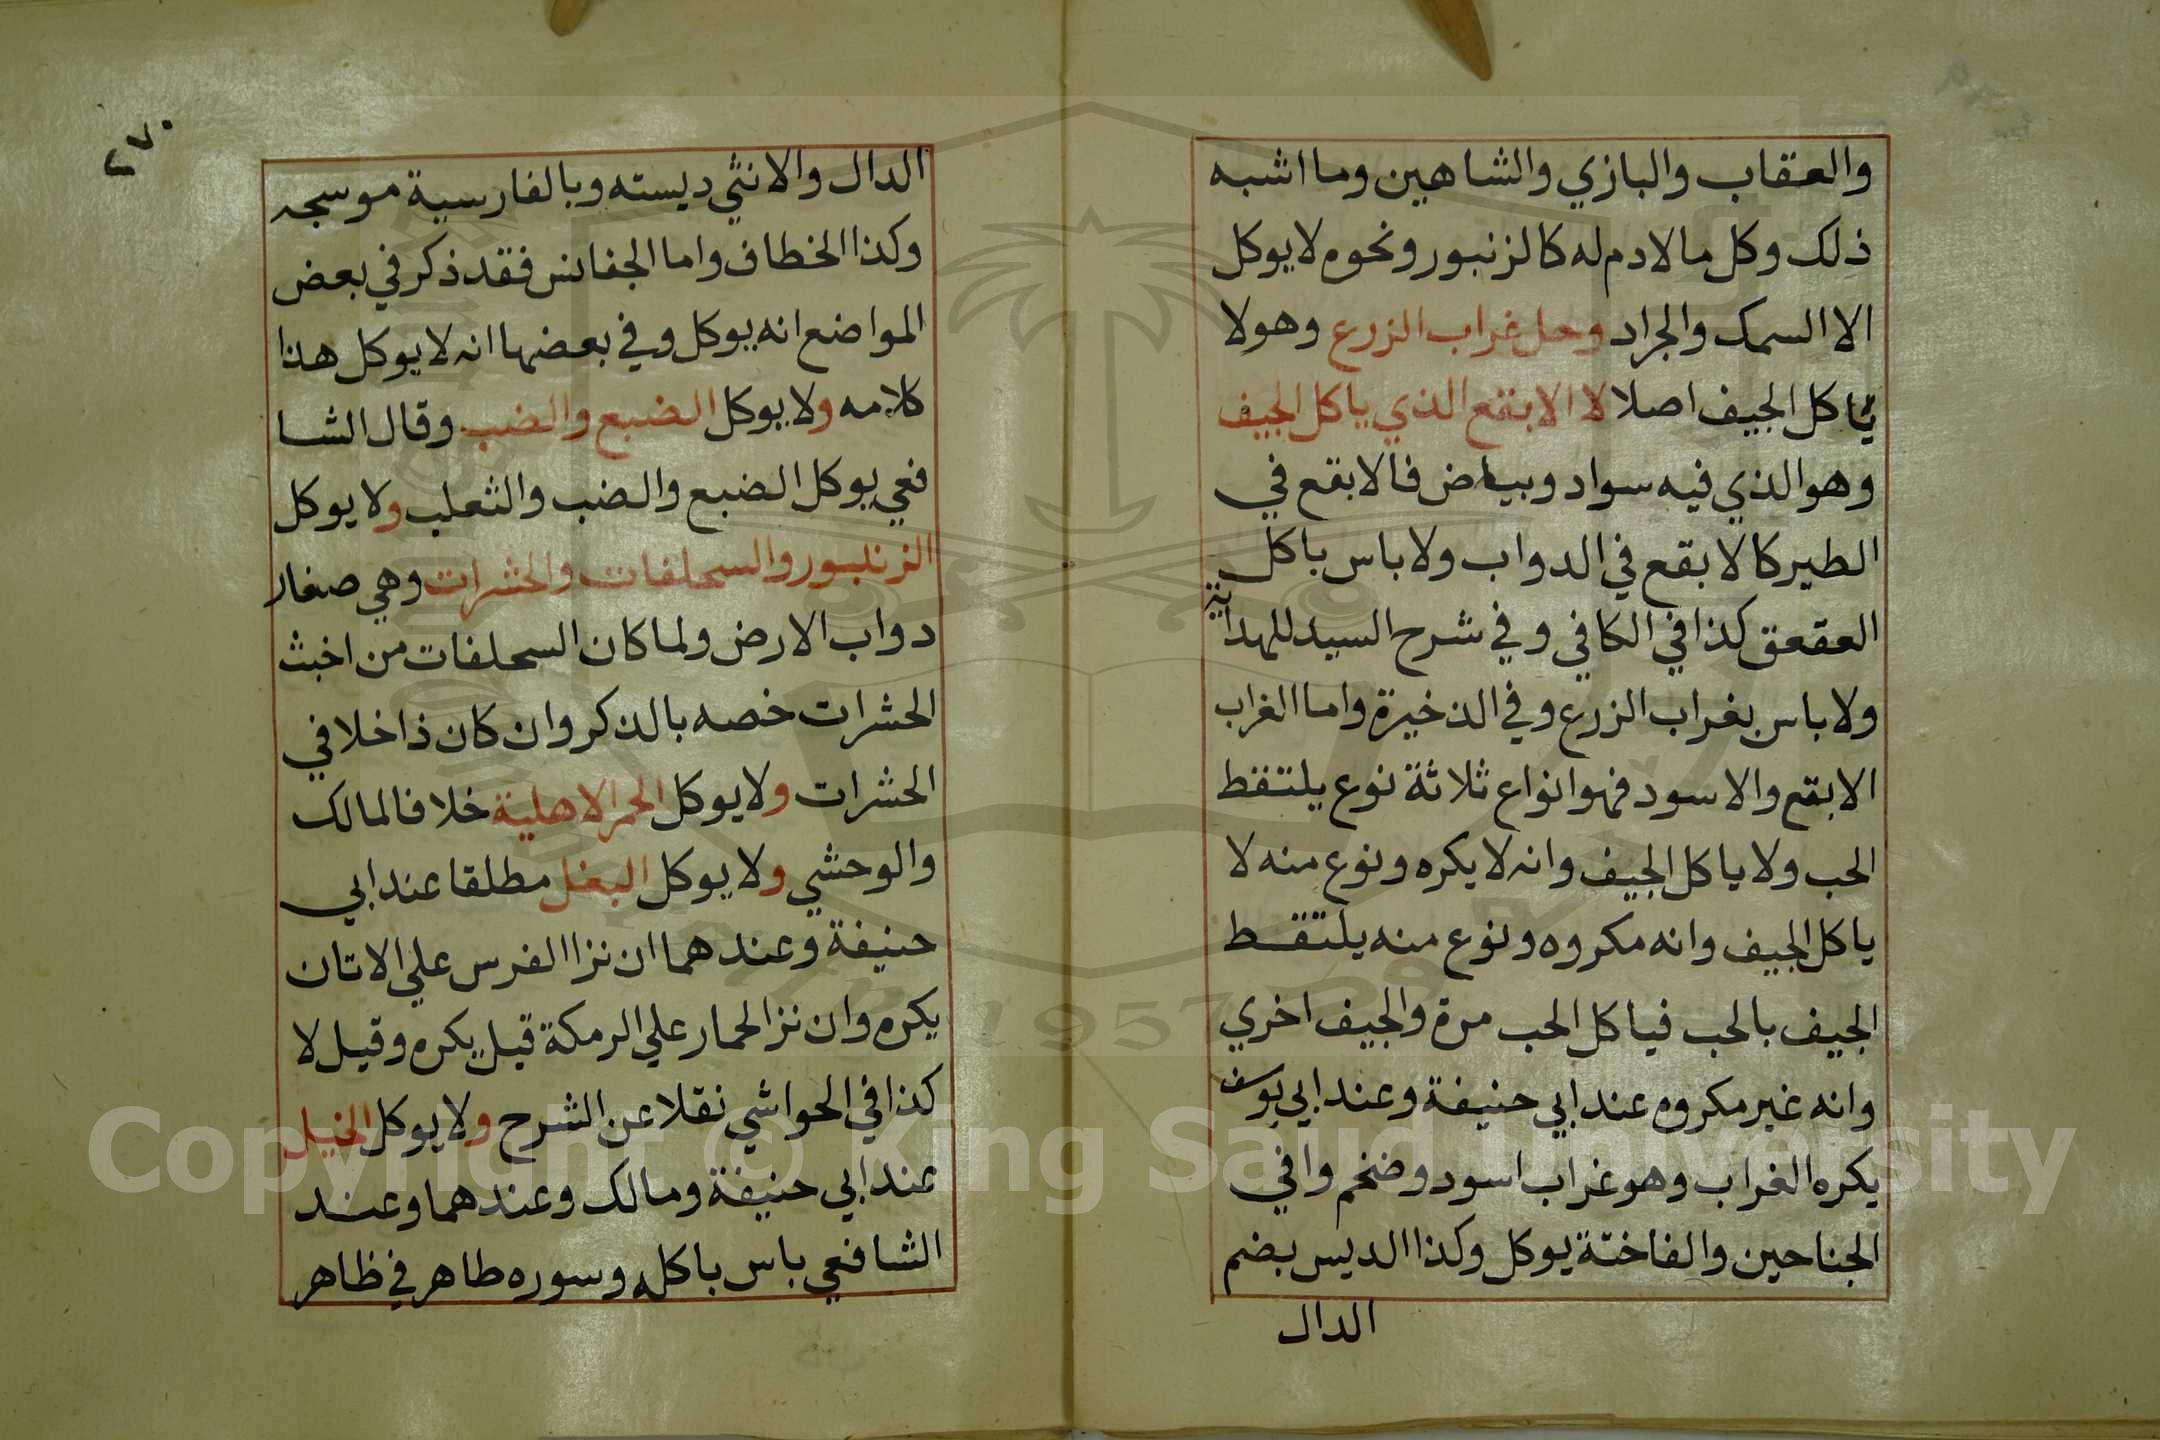 والعقاب والبازي والشاهين وما اشبه
ذلك وكل ما لا دم له كالزنبور ونحوه لا يوكل
الا السمك والجراد وحل غراب الزرع وهو لا
ياكل الجيف اصلا لا الابقع الذي ياكل الجيف
وهو الذي فيه سواد وبياض فالابقع في
الطير كالابقع في الدواب ولا باس باكل
العقعق كذا في الكافي وفي شرح السيد للهداية
ولا باس بغراب الزرع وفي الذخيرة واما الغراب
الابقع والاسود فهو انواع ثلاثة نوع يلتقط
الحب ولا ياكل الجيف وانه لا يكره ونوع منه لا
ياكل الجيف وانه مكروه ونوع منه يلتقط
الجيف بالحب فياكل الحب مرة والجيف اخري
وانه غير مكروه عند ابي حنيفة وعند ابي يوسف
يكره الغراب وهو غراب اسود وضخم وافي
الجناحين والفاختة يوكل وكذا الديس بضم
الدال
٢٧٠
الدال والانثي ديسته وبالفارسية موسجه
وكذا الخطاف واما الجفانس فقد ذكر في بعض
المواضع انه يوكل وفي بعضها انه لا يوكل هذا
كلامه ولا يوكل الضبع والضب وقال الشا
فعي يوكل الضبع والضب والثعلب ولا يوكل
الزنبور والسحلفات والحشرات وهي صغار
دواب الارض ولما كان السحلفات من اخبث
الحشرات خصه بالذكر وان كان داخلا في
الحشرات ولا يوكل الحمر الاهلية خلافا لمالك
والوحشي ولا يوكل البغل مطلقا عند ابي
حنيفة وعندهما ان نزا الفرس علي الاتان
يكره وان نزا الحمار علي الرمكة قيل يكره وقيل لا
كذا في الحواشي نقلا عن الشرح ولا يوكل الخيل
عند ابي حنيفة ومالك وعندهما وعند
الشافعي باس باكله وسوره طاهر في ظاهر
Copyright © King Saud University
1957